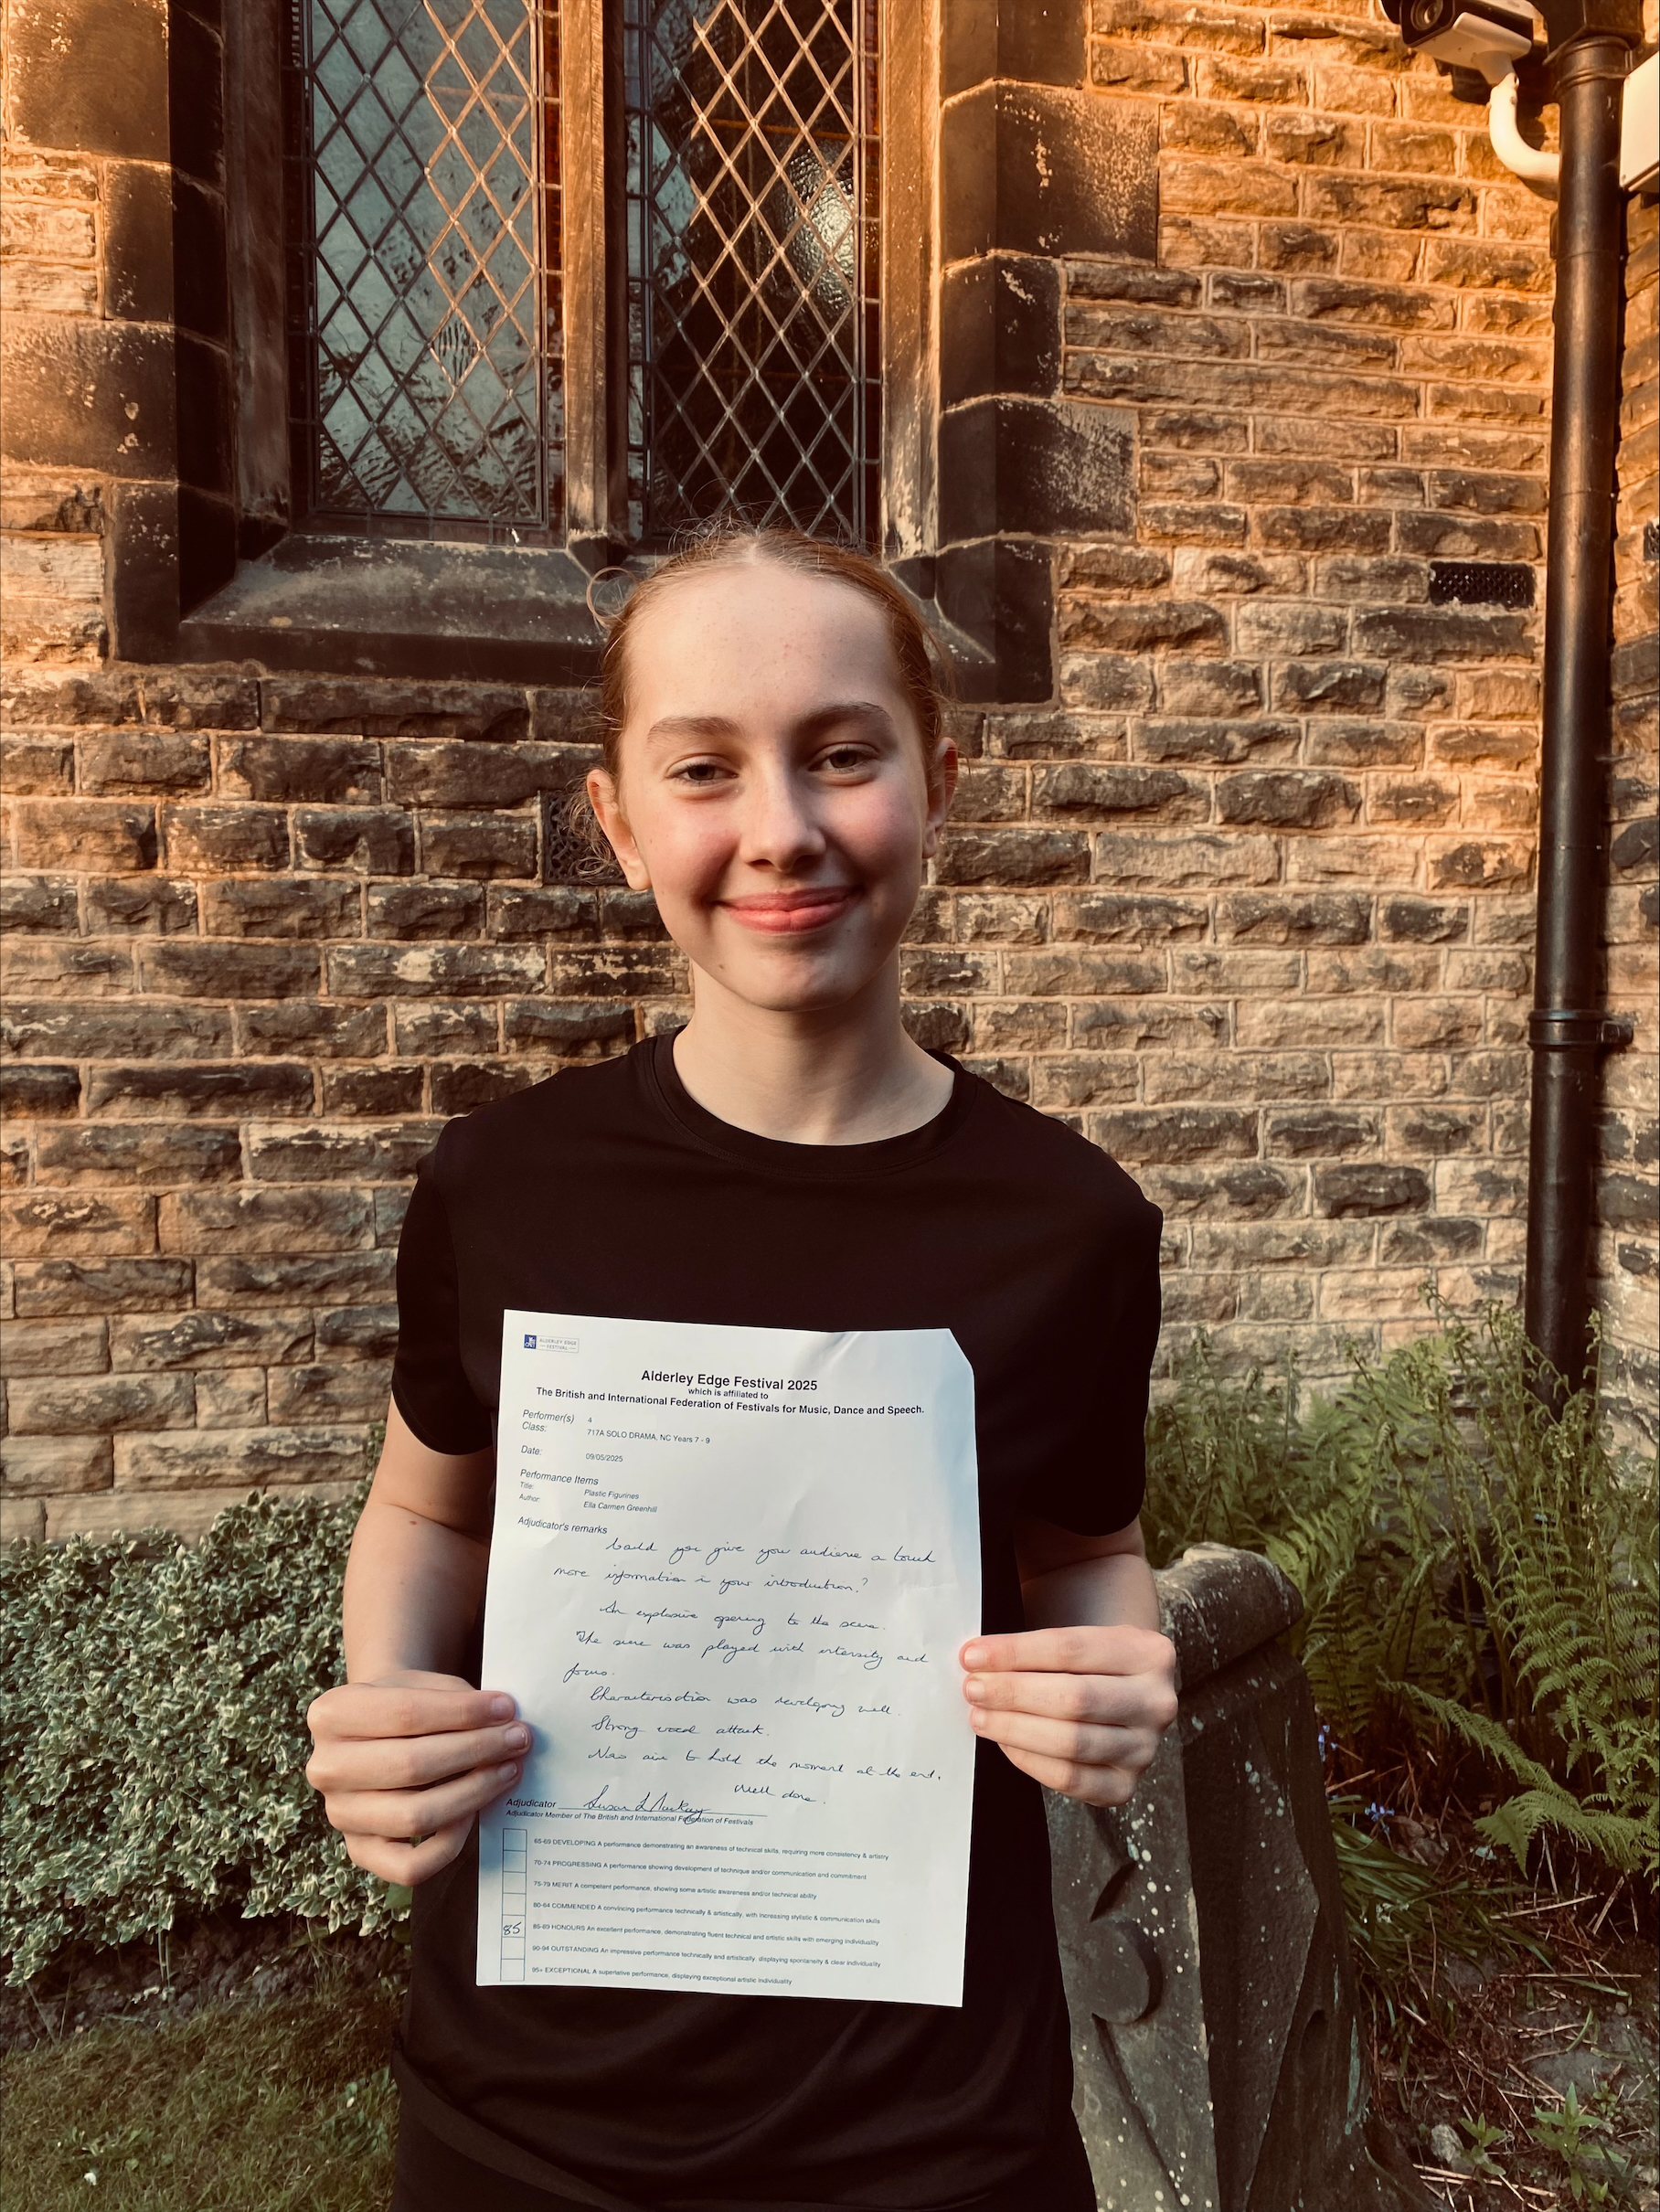 ALDERLEY EDGE
FESTIVAL
Alderley Edge Festival 2025
which is affiliated to
The British and International Federation of Festivals for Music, Dance and Speech.
Performer(s) 4
Class: 717A SOLO DRAMA, NC Years 7 - 9
Date: 09/05/2025
Performance Items
Title: Plastic Figurines
Author: Ella Carmen Greenhill
Adjudicator's remarks
Could you give you audience a touch
more information in your introduction?
An explosive opening to the scene.
The scene was played with intensity and
focus.
Characterisation was developing well.
Strong vocal attack.
Now aim to hold the moment at the end.
Well done.
Adjudicator Susan L Mackay
Adjudicator Member of The British and International Federation of Festivals
65-69 DEVELOPING A performance demonstrating an awareness of technical skills, requiring more consistency & artistry
70-74 PROGRESSING A performance showing development of technique and/or communication and commitment
75-79 MERIT A competent performance, showing some artistic awareness and/or technical ability
80-84 COMMENDED A convincing performance technically & artistically, with increasing stylistic & communication skills
85 85-89 HONOURS An excellent performance, demonstrating fluent technical and artistic skills with emerging individuality
90-94 OUTSTANDING An impressive performance technically and artistically, displaying spontaneity & clear individuality
95+ EXCEPTIONAL A superlative performance, displaying exceptional artistic individuality